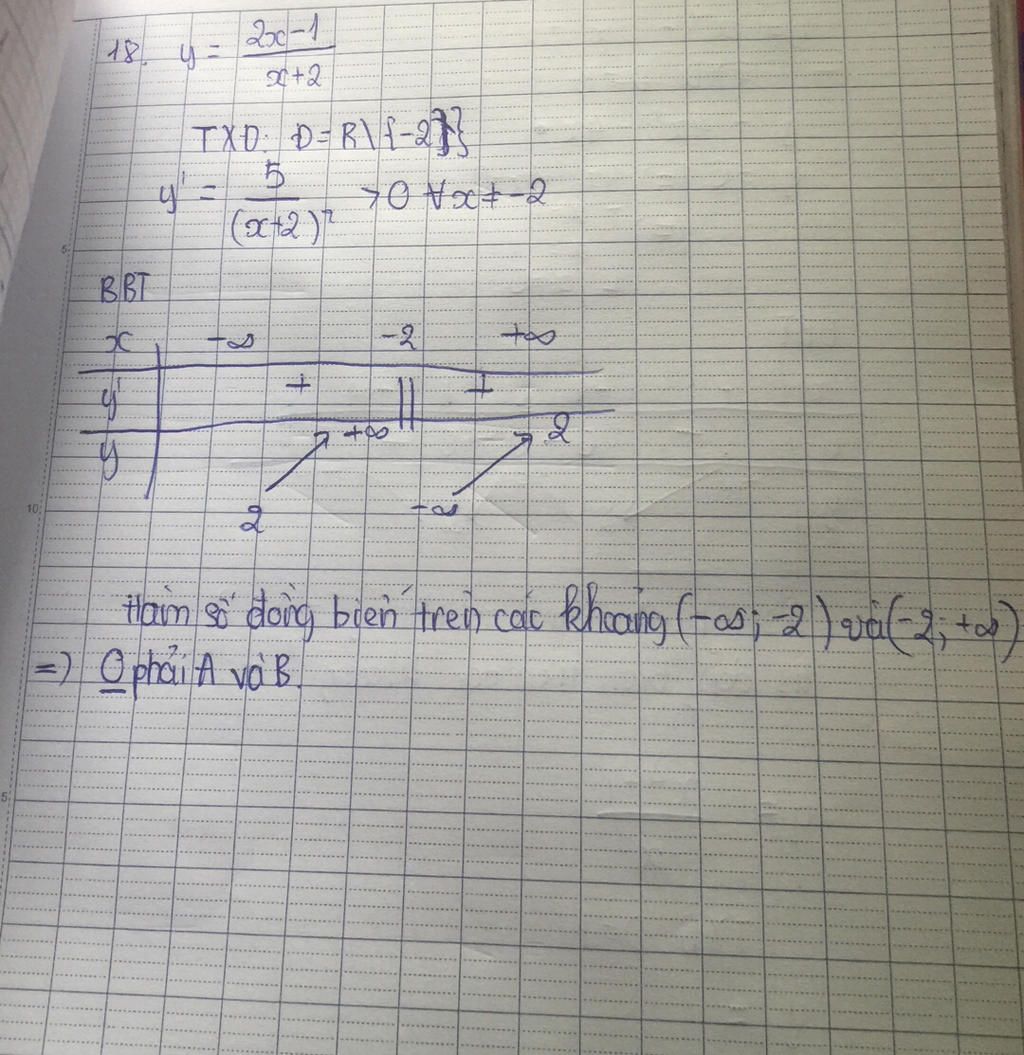 18. y = \frac{2x-1}{x+2}
TXĐ: D=R\{-2}
y' = \frac{5}{(x+2)^2} >0 ∀x≠-2
BBT
x -∞ -2 +∞
y' + || +
y 2 ↗ +∞ -∞ ↗ 2
Hàm số đồng biến trên các khoảng (-∞; -2) và (-2; +∞)
=) O phải A và B.
5
10
5